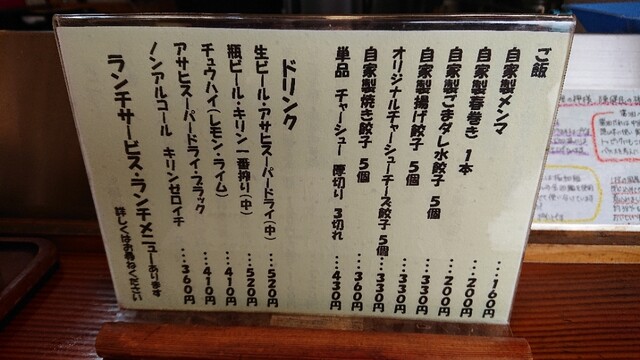 ご飯 …160円
自家製メンマ …200円
自家製春巻き 1本 …200円
自家製ごまダレ水餃子 5個 …330円
自家製揚げ餃子 5個 …330円
オリジナルチャーシューチーズ餃子 5個 …330円
自家製焼き餃子 5個 …360円
単品 チャーシュー 厚切り 3切れ …430円
ドリンク
生ビール・アサヒスーパードライ(中) …520円
瓶ビール・キリン一番搾り(中) …520円
チュウハイ(レモン・ライム) …410円
アサヒスーパードライ・ブラック …410円
ノンアルコール キリンゼロイチ …360円
ランチサービス・ランチメニューあります
詳しくはお尋ねください